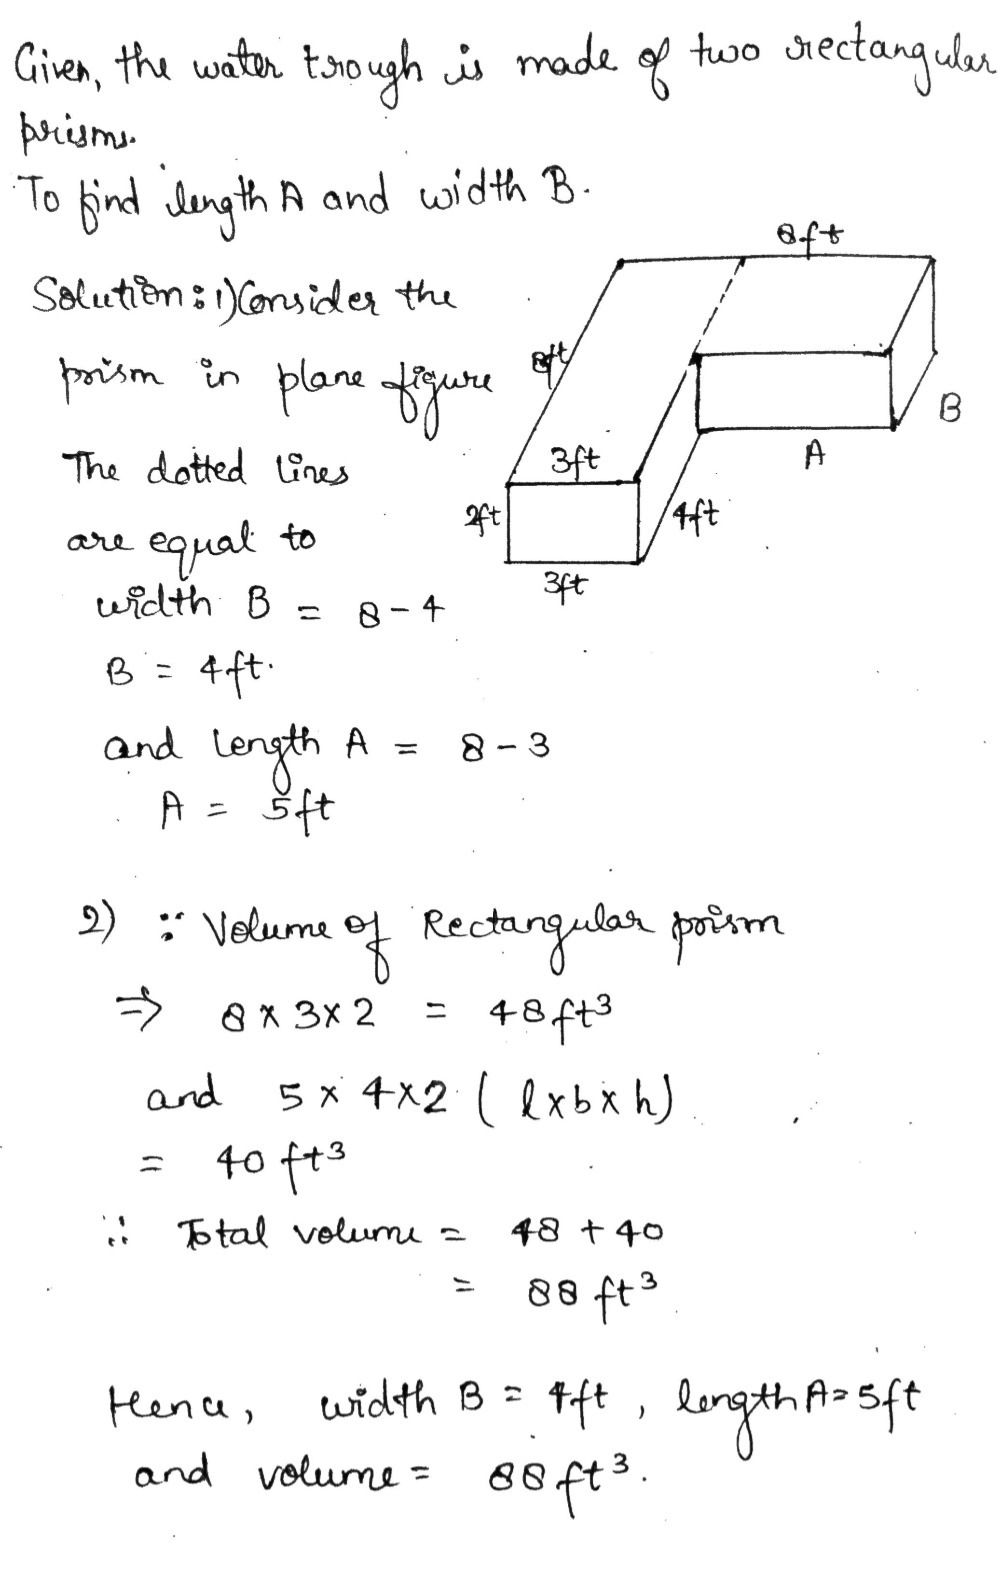 Given, the water trough is made of two rectangular
prisms.
To find length A and width B.
8ft
Solution: 1) Consider the
prism in plane figure
8ft
B
The dotted lines
3ft
A
2ft
4ft
are equal to
3ft
width B = 8 - 4
B = 4ft.
and length A = 8 - 3
A = 5ft
2) ∵ Volume of Rectangular prism
⇒ 8 × 3 × 2 = 48ft³
and 5 × 4 × 2 (l×b×h)
= 40 ft³
∴ Total volume = 48 + 40
= 88 ft³
Hence, width B = 4ft, length A = 5ft
and volume = 88 ft³.